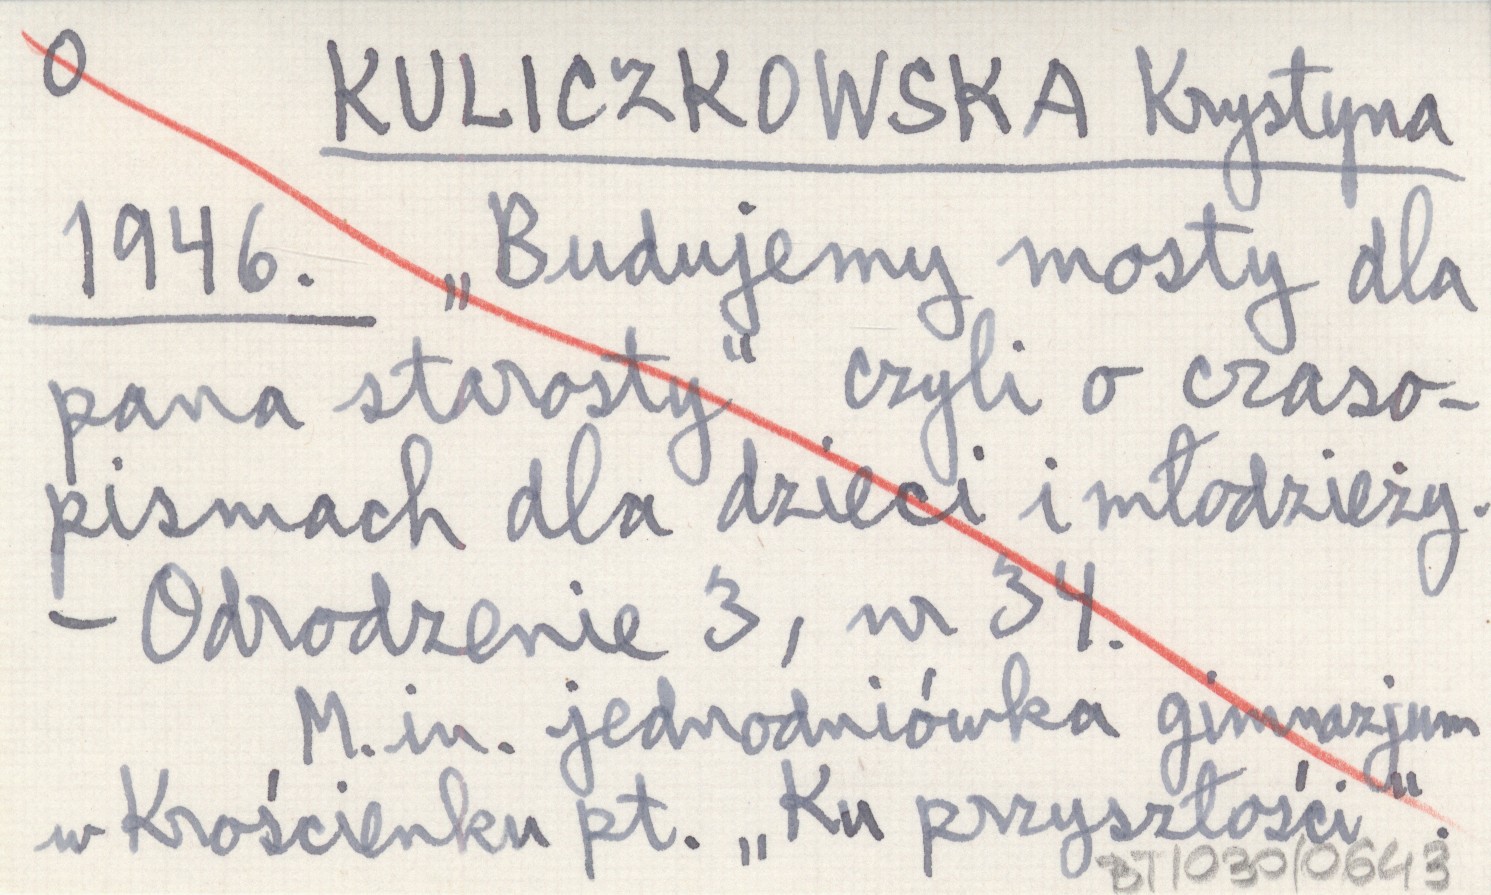 O KULICZKOWSKA Krystyna
1946. „Budujemy mosty dla
pana starosty" czyli o czaso-
pismach dla dzieci i młodzieży.
– Odrodzenie 3, nr 34.
M.in. jednodniówka gimnazjum
w Krościenku pt. „Ku przyszłości".
BT/030/0643